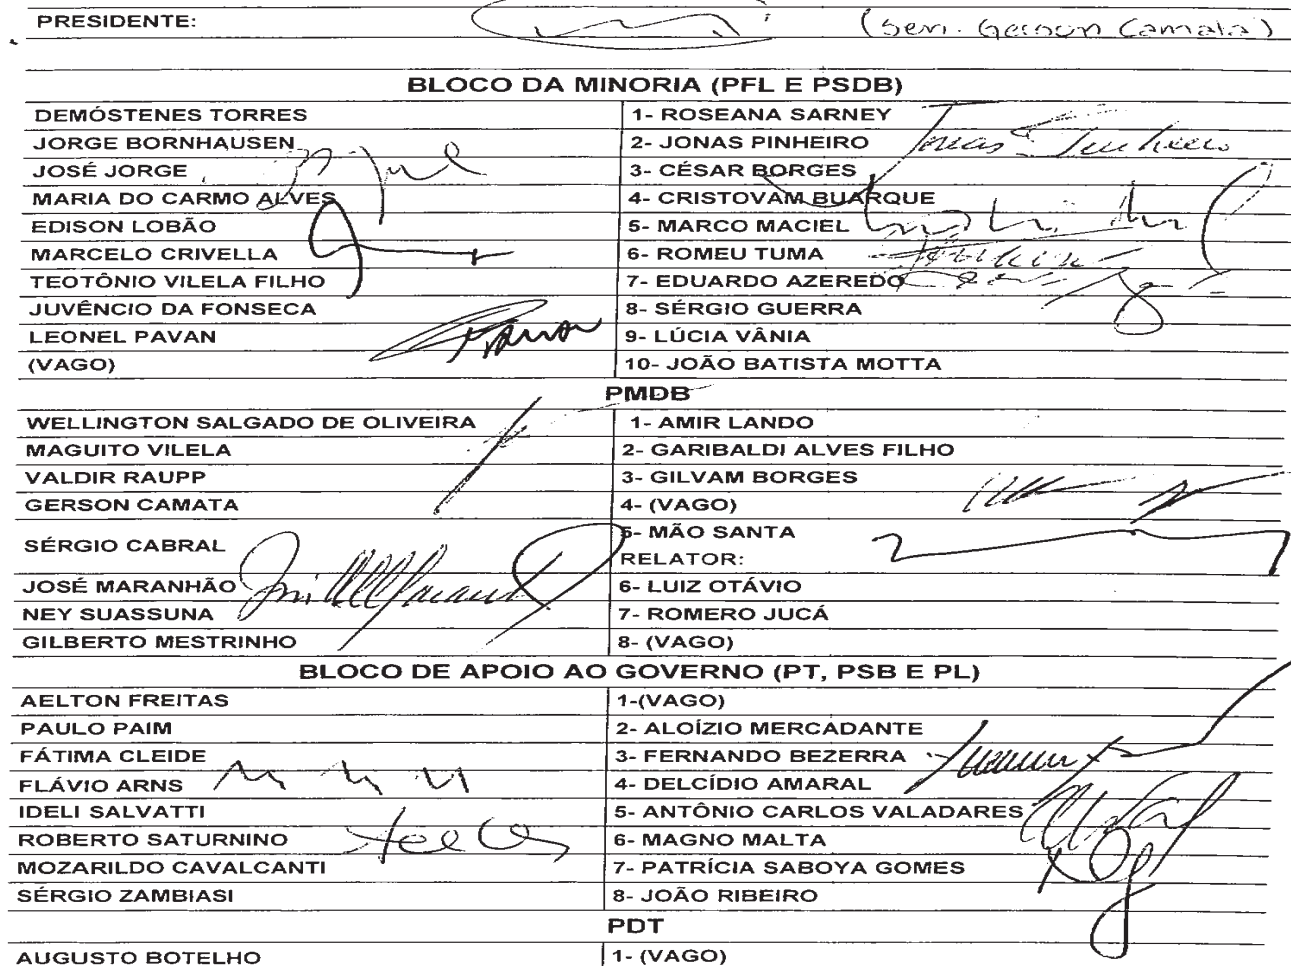 PRESIDENTE: (Sen. Gerson Camata)
BLOCO DA MINORIA (PFL E PSDB)
DEMÓSTENES TORRES 1- ROSEANA SARNEY
JORGE BORNHAUSEN 2- JONAS PINHEIRO Jonas Pinheiro
JOSÉ JORGE 3- CÉSAR BORGES
MARIA DO CARMO ALVES 4- CRISTOVAM BUARQUE
EDISON LOBÃO 5- MARCO MACIEL
MARCELO CRIVELLA 6- ROMEU TUMA
TEOTÔNIO VILELA FILHO 7- EDUARDO AZEREDO
JUVÊNCIO DA FONSECA 8- SÉRGIO GUERRA
LEONEL PAVAN Pavan 9- LÚCIA VÂNIA
(VAGO) 10- JOÃO BATISTA MOTTA
PMDB
WELLINGTON SALGADO DE OLIVEIRA 1- AMIR LANDO
MAGUITO VILELA 2- GARIBALDI ALVES FILHO
VALDIR RAUPP 3- GILVAM BORGES
GERSON CAMATA 4- (VAGO)
SÉRGIO CABRAL 5- MÃO SANTA
RELATOR:
JOSÉ MARANHÃO 6- LUIZ OTÁVIO
NEY SUASSUNA 7- ROMERO JUCÁ
GILBERTO MESTRINHO 8- (VAGO)
BLOCO DE APOIO AO GOVERNO (PT, PSB E PL)
AELTON FREITAS 1-(VAGO)
PAULO PAIM 2- ALOÍZIO MERCADANTE
FÁTIMA CLEIDE 3- FERNANDO BEZERRA
FLÁVIO ARNS 4- DELCÍDIO AMARAL
IDELI SALVATTI 5- ANTÔNIO CARLOS VALADARES
ROBERTO SATURNINO 6- MAGNO MALTA
MOZARILDO CAVALCANTI 7- PATRÍCIA SABOYA GOMES
SÉRGIO ZAMBIASI 8- JOÃO RIBEIRO
PDT
AUGUSTO BOTELHO 1- (VAGO)